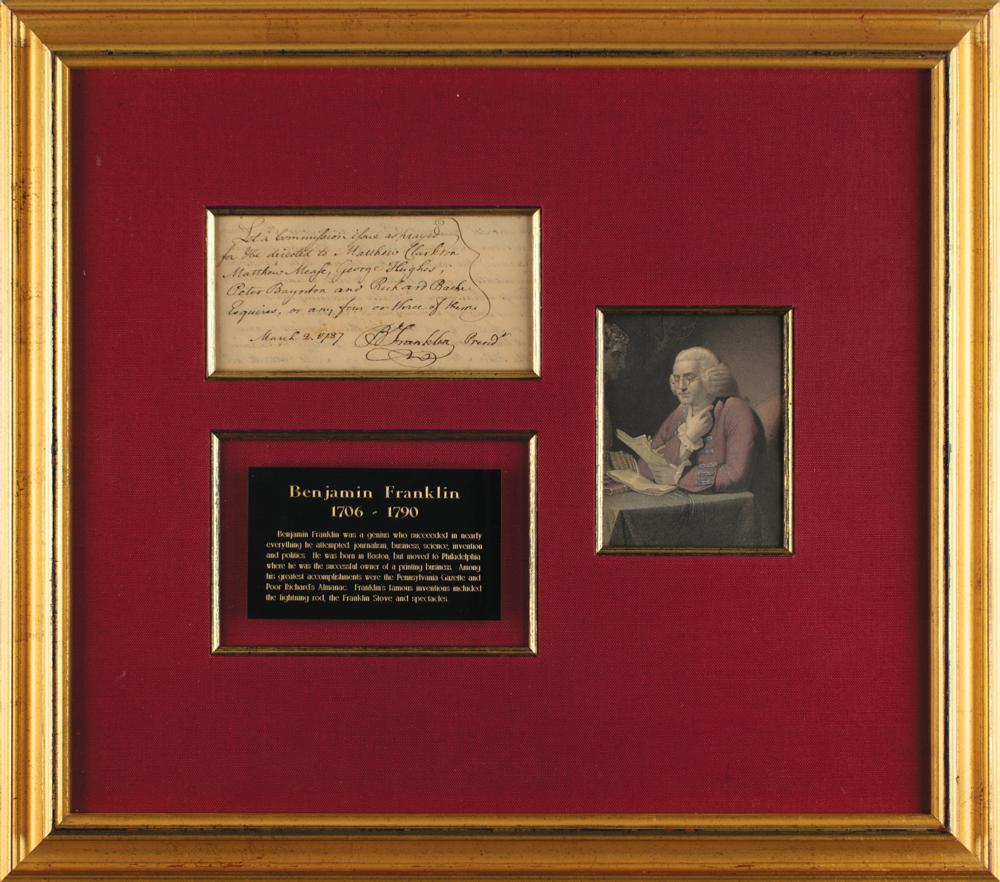 Let a Commission issue as prayed
for & be directed to Matthew Clarkson
Matthew Mease, George Hughes,
Peter Baynton and Richard Bache
Esquires, or any four or three of them
March 2. 1787 B Franklin Presidt
Benjamin Franklin
1706 - 1790
Benjamin Franklin was a genius who succeeded in nearly
everything he attempted: journalism, business, science, invention
and politics. He was born in Boston, but moved to Philadelphia
where he was the successful owner of a printing business. Among
his greatest accomplishments were the Pennsylvania Gazette and
Poor Richard's Almanac. Franklin's famous inventions included
the lightning rod, the Franklin Stove and spectacles.